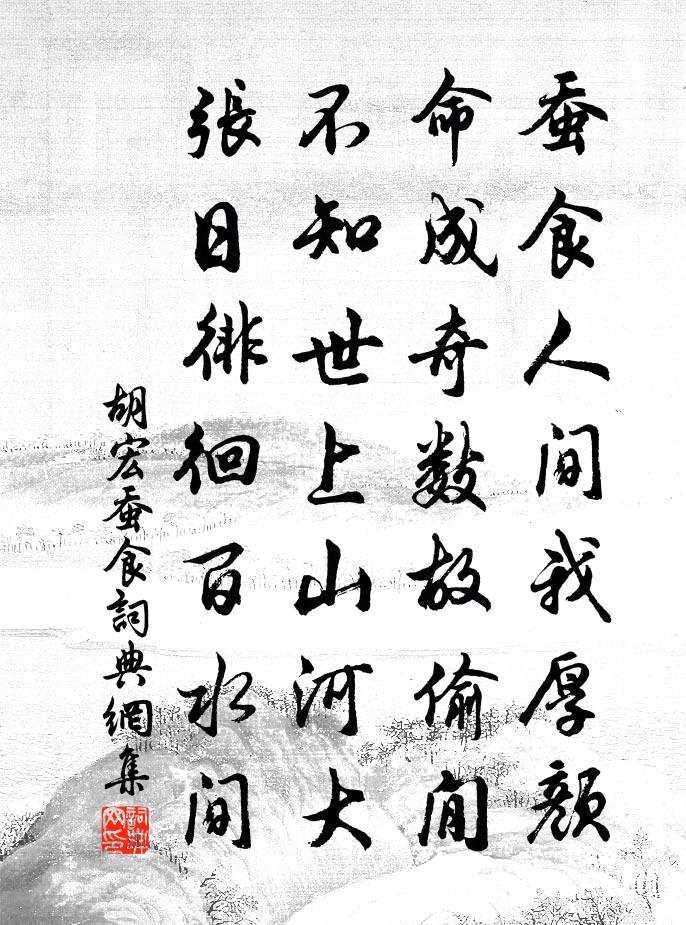 蚕食人間我厚顏
命成奇数故偷閒
不知世上山河大
張日徘徊百水間
胡宏蚕食詞典網集